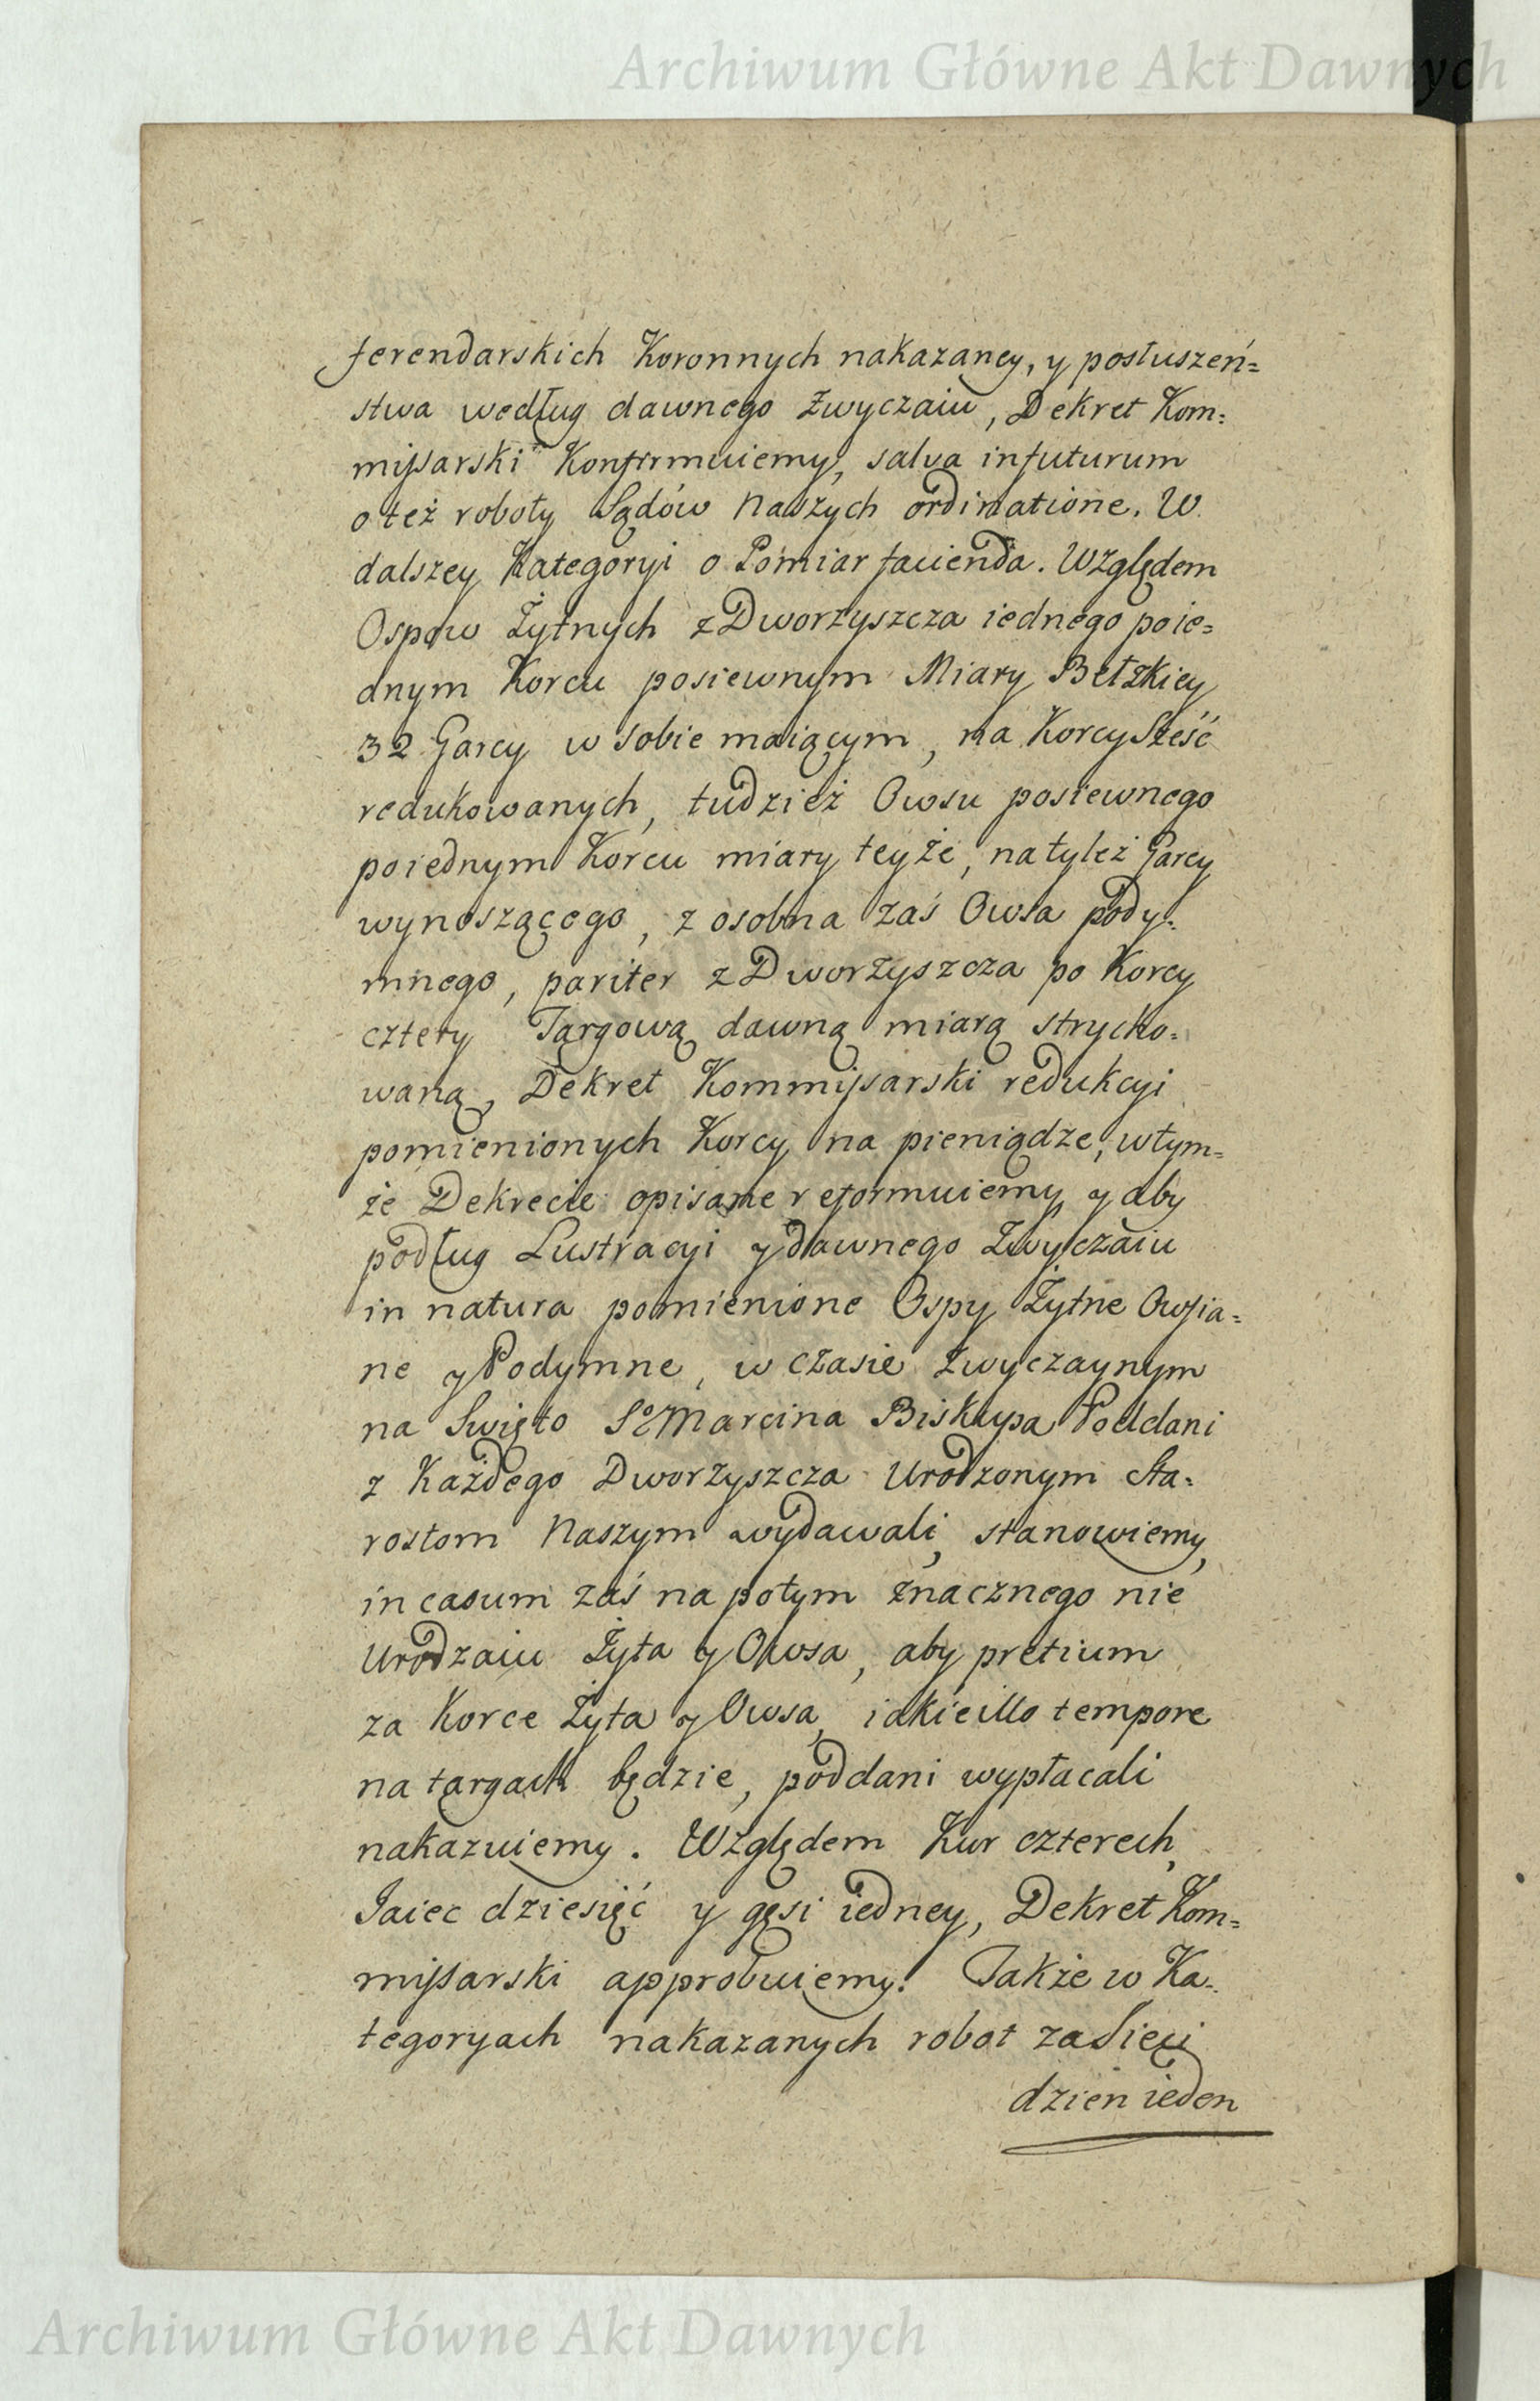 Archiwum Główne Akt Dawnych
ferendarskich Koronnych nakazaney, y posłuszeń=
stwa według dawnego Zwyczaiu, Dekret Kom=
missarski Konfirmuiemy, salva in futurum
o też roboty Sądów Naszych ordinatione. W
dalszey Kategoryi o Pomiar facienda. Względem
Ospow Żytnych z Dworzyszcza iednego po ie=
dnym Korcu posiewnym Miary Bełzkiey
32 Garcy w sobie maiącym, na Korcy Sześć
redukowanych, tudzież Owsu posiewnego
po iednym Korcu miary teyże, na tyleż Garcy
wynoszącego, z osobna zaś Owsa pody=
mnego, pariter z Dworzyszcza po Korcy
cztery Targową dawną miarą strycho=
waną, Dekret Kommissarski redukcyi
pomienionych Korcy na pieniądze, w tym=
że Dekrecie opisane reformuiemy, y aby
podług Lustracyi y dawnego Zwyczaiu
in natura pomienione Ospy Żytne Owsia=
ne y Podymne, w czasie zwyczaynym
na Swięto So Marcina Biskupa Poddani
z Każdego Dworzyszcza Urodzonym Sta=
rostom Naszym wydawali, stanowiemy,
in casum zaś na potym znacznego nie
Urodzaiu Żyta y Owsa, aby pretium
za Korce Żyta y Owsa, iakie illo tempore
na targach będzie, poddani wypłacali
nakazuiemy. Względem Kur czterech,
Jaiec dziesięć y gęsi iedney, Dekret Kom=
missarski approbuiemy. Także w Ka=
tegoryach nakazanych robot za Sieci
dzien ieden
Archiwum Główne Akt Dawnych